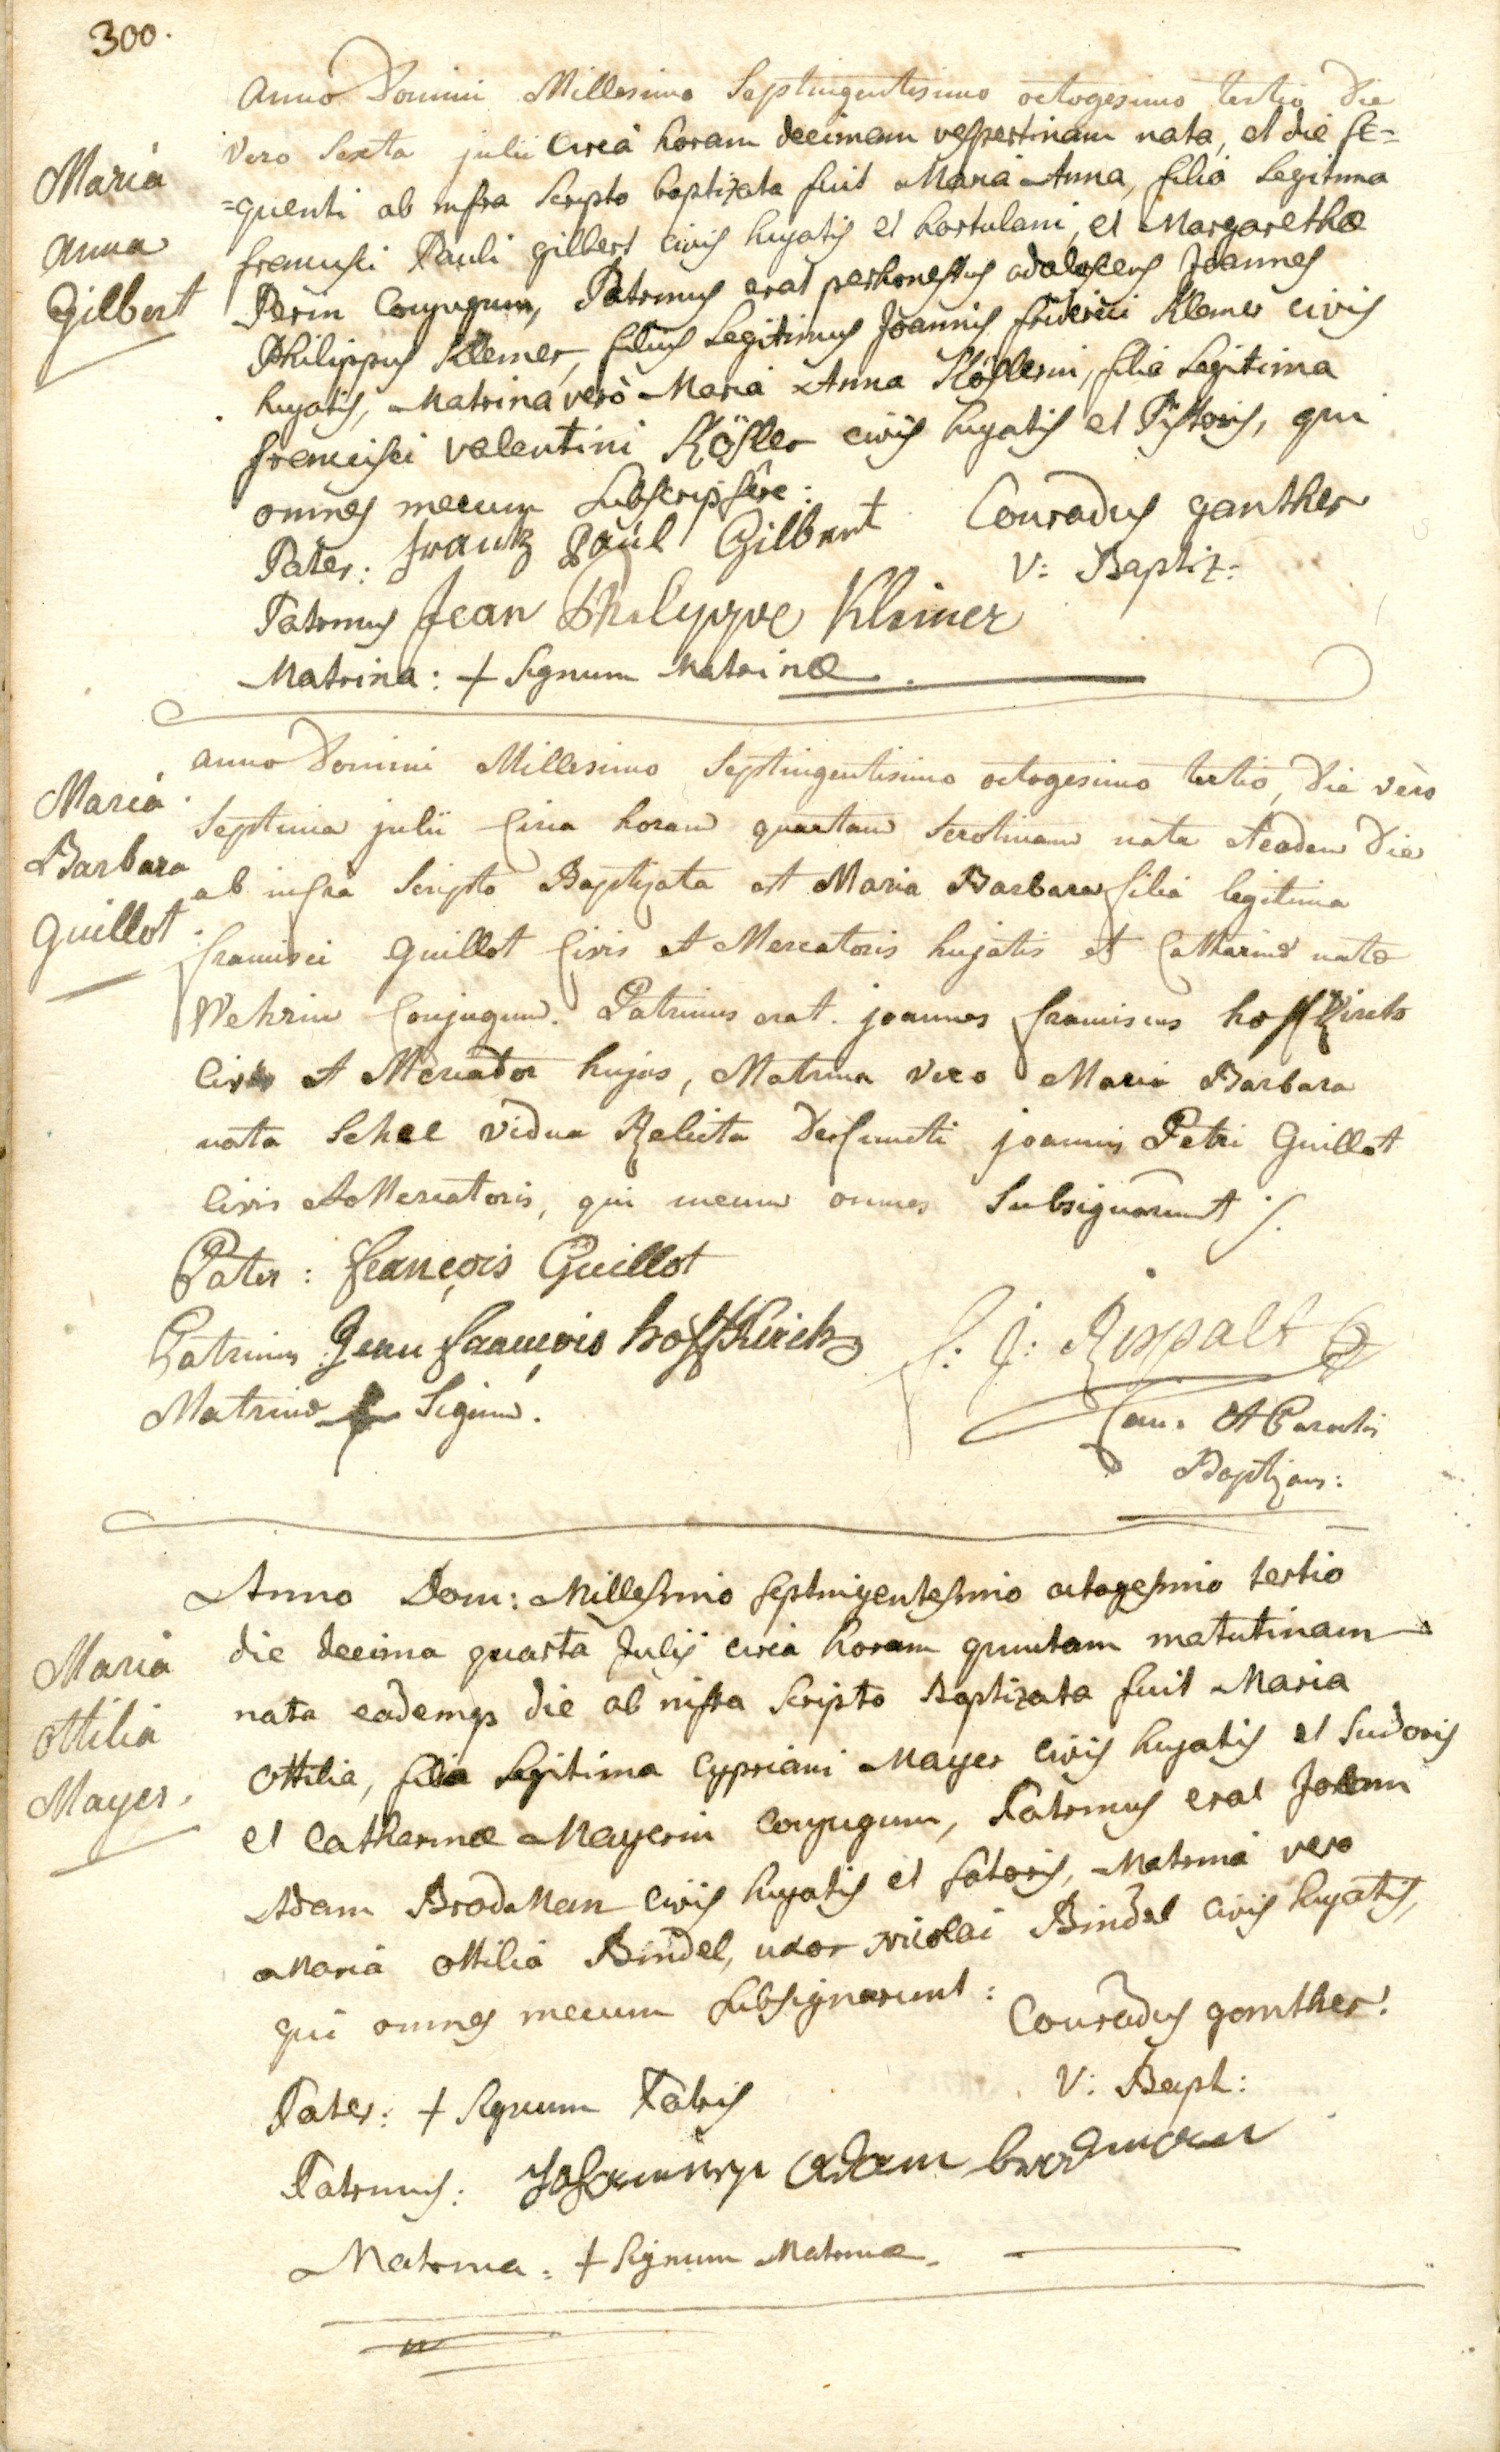 300.
Anno Domini Millesimo Septingentisimo octogesimo tertio die
vero Sexta julii circa horam decimam vespertinam nata, et die se=
=quenti ab infra scripto baptizata fuit Maria Anna, filia legitima
francisci Pauli gilbert civis hujatis et hortulani, et Margarethæ
Perin Conjugum, Patrinus erat perhonestus adolescens Joannes
Philippus Klemer, filius legitimus Joannis friderici Klemer civis
hujatis, Matrina verò Maria Anna Kösslerin, filia legitima
francisci valentini Kössler civis hujatis et Pistoris, qui
omnes mecum subscripsêre:
Maria
Anna
Gilbert
Pater: frantz Paul Gilbert
Conradus ganther
V: Baptiz:
Patrinus Jean Philippe Klimer
Matrina: + Signum Matrinæ.
Anno Domini Millesimo Septingentisimo octogesimo tertio, die vero
Septima julii circa horam quartam serotinam nata et eadem die
ab infra scripto Baptizata est Maria Barbara filia legitima
francisci Guillot civis et Mercatoris hujatis et Catharinæ natæ
Wehrin Conjugum. Patrinus erat joannes franciscus hoffkirch
civis et Mercator hujas, Matrina vero Maria Barbara
nata Schee vidua Relicta defuncti joannis Petri Guillot
civis et Mercatoris, qui mecum omnes Subsignarunt ./.
Maria
Barbara
Guillot
Pater: françois Guillot
Patrinus Jean françois hoffkirch
Matrinæ + Signum.
f: j: Rispalt
Can. et Parochus
Baptizans:
Anno Dom: Millesimo septuigentesimo octogesimo tertio
die decima quarta Julij circa horam quintam matutinam
nata eademq die ab infra scripto Baptizata fuit Maria
Ottilia, filia legitima Cypriani Mayer civis hujatis et Sudoris
et Catharinæ Mayerin Conjugum, Patrinus erat Joann
Adam BrodMan civis hujatis et satoris, Matrina vero
Maria Ottilia Bindel, uxor Nicolai Bindel civis hujatis,
qui omnes mecum subsignarunt:
Maria
Ottilia
Mayer.
Conradus ganther.
V: Bapt:
Pater: + Signum Patris
Patrinus: Johannes adam brodman
Matrina: + Signum Matrinæ.